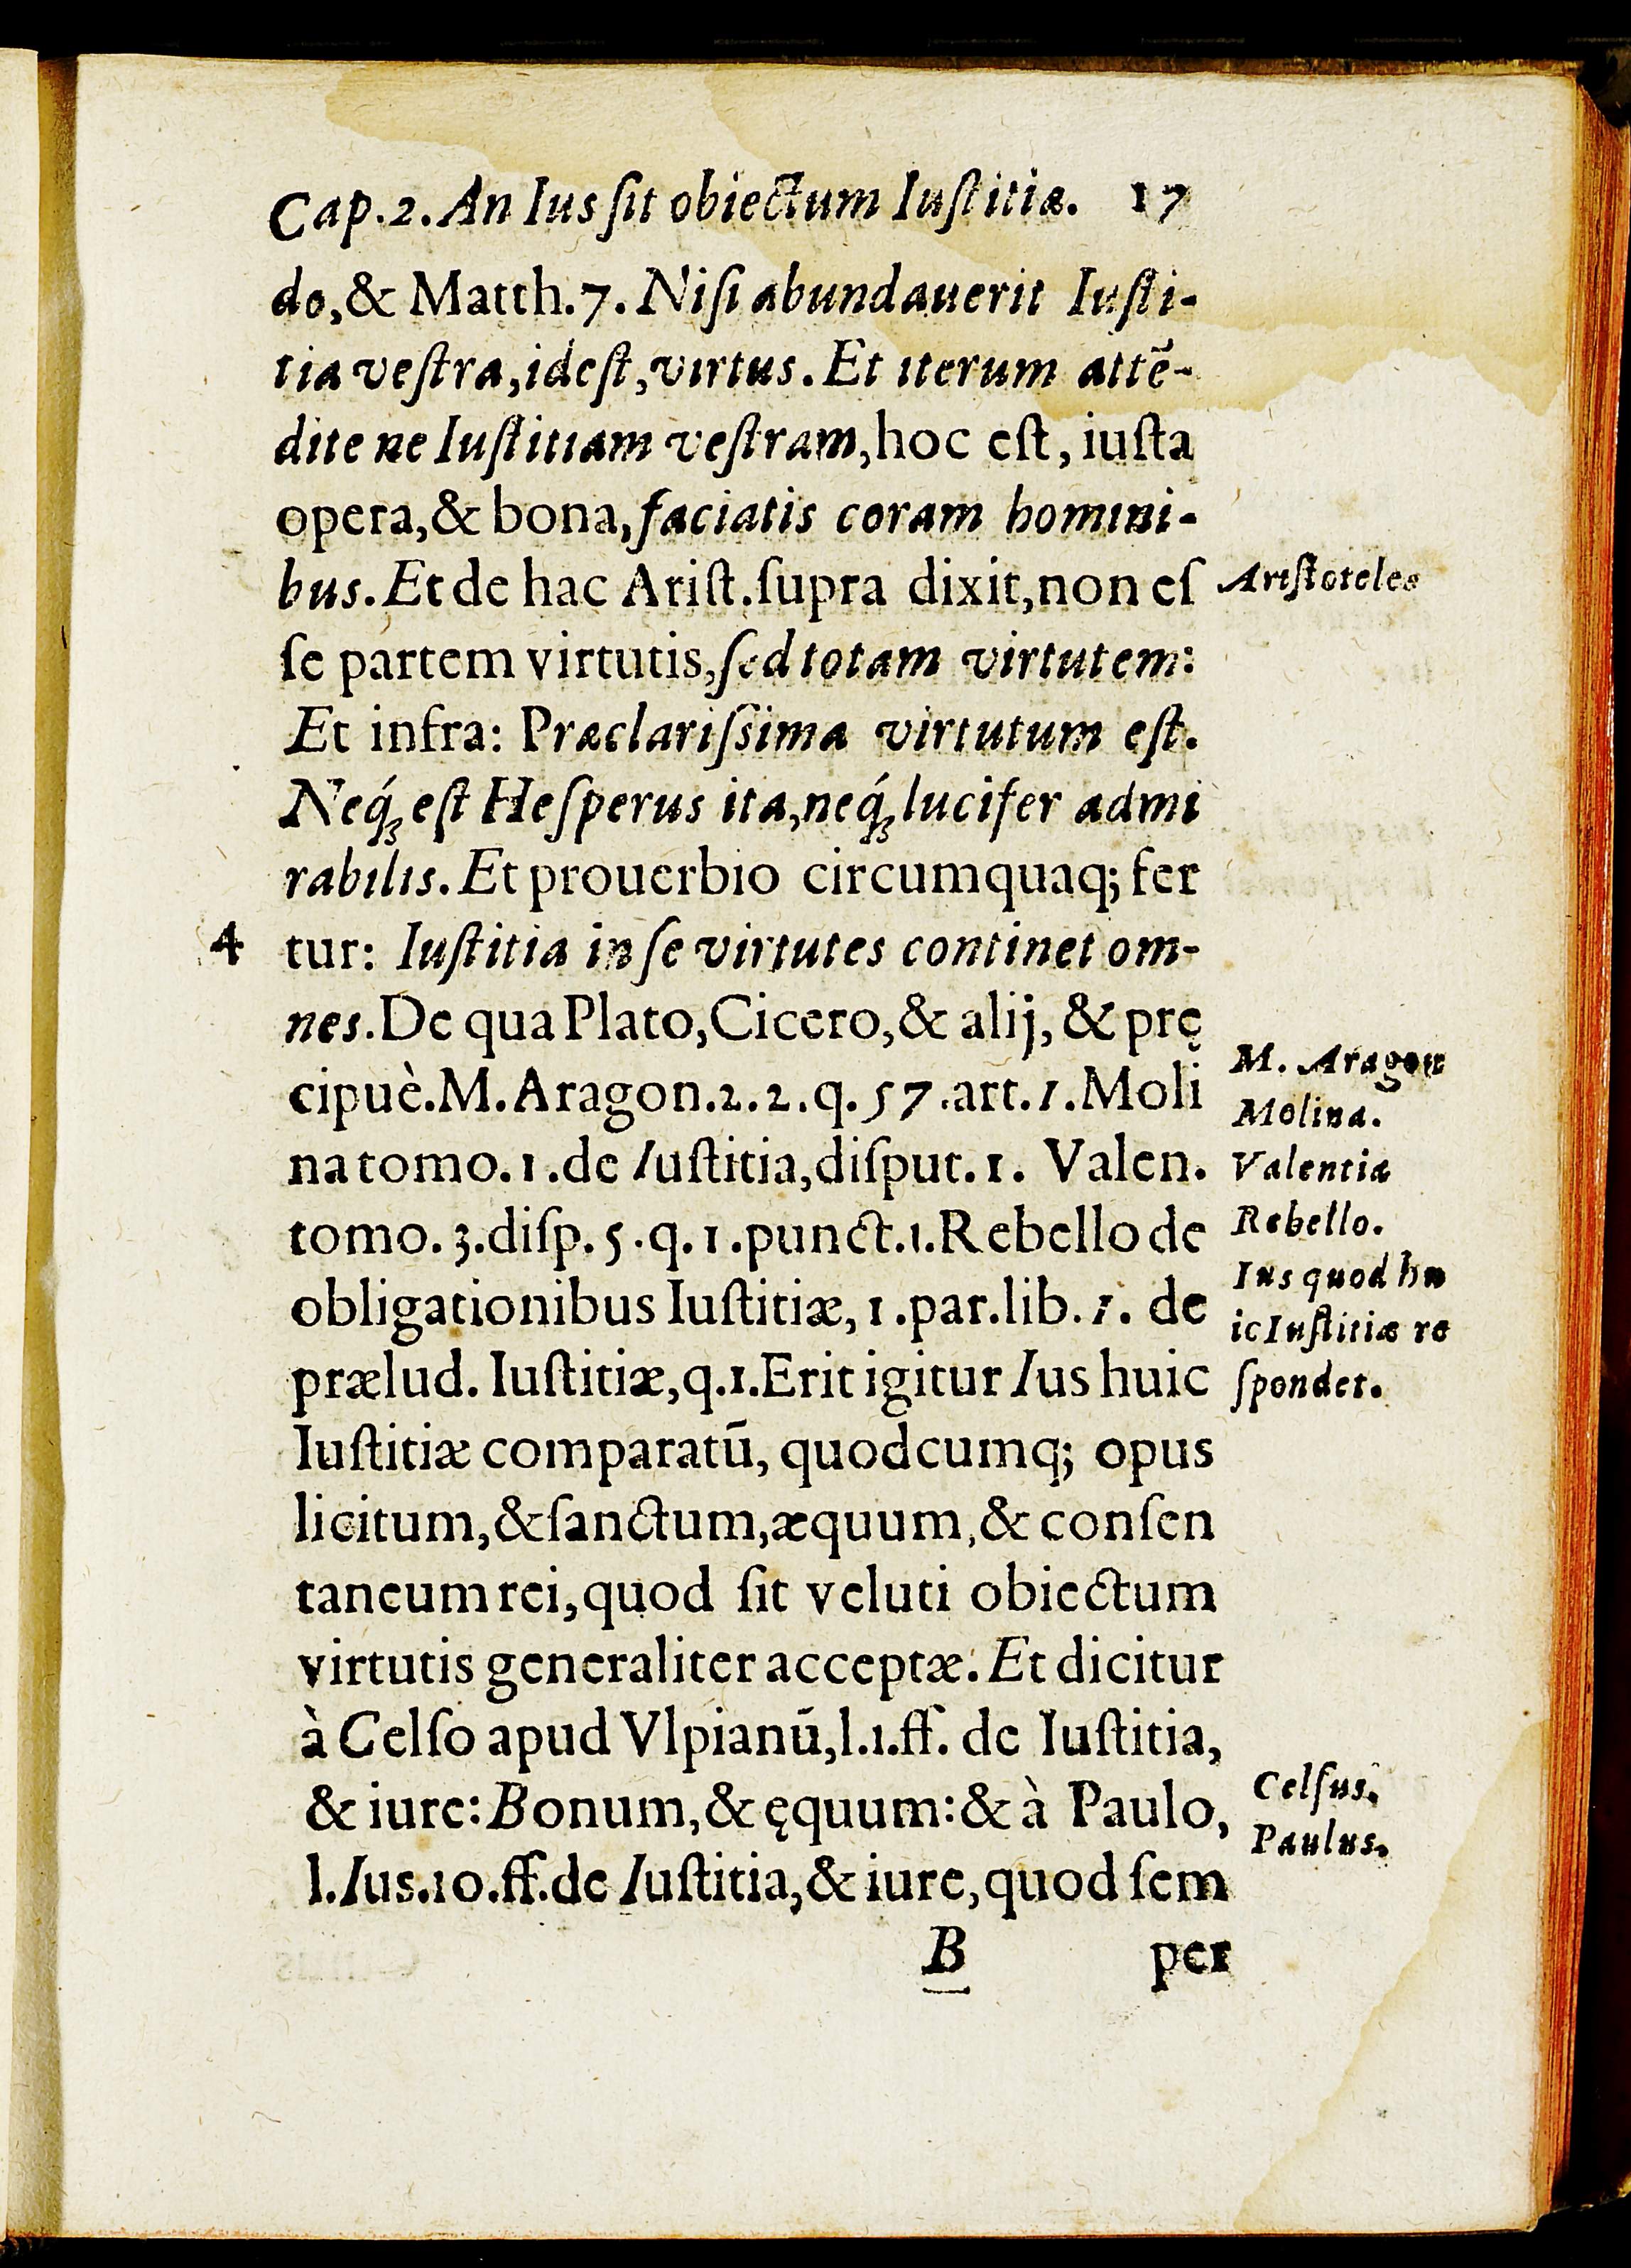 Cap.2. An Ius ſit obiectum Iuſtitiæ. 17
do,& Matth.7. Niſi abundauerit Iuſti-
tia veſtra, ideſt, virtus. Et iterum attē-
dite ne Iuſtitiam veſtram, hoc eſt, iuſta
opera,& bona, faciatis coram homini-
bus. Et de hac Ariſt. ſupra dixit, non eſ
ſe partem virtutis, ſed totam virtutem:
Et infra: Præclariſſima virtutum eſt.
Neq́ꝫ eſt Heſperus ita, neq́ꝫ lucifer admi
rabilis. Et prouerbio circumquaq; fer
tur: Iuſtitia in ſe virtutes continet om-
nes. De qua Plato, Cicero,& alij, & prę
cipuè. M. Aragon. 2. 2. q. 57. art. 1. Moli
na tomo. 1. de Iuſtitia, diſput. 1. Valen.
tomo. 3. diſp. 5. q. 1. punct. 1. Rebello de
obligationibus Iuſtitiæ, 1. par. lib. 1. de
prælud. Iuſtitiæ, q. 1. Erit igitur Ius huic
Iuſtitiæ comparatū, quodcumq; opus
licitum, & ſanctum, æquum, & conſen
taneum rei, quod ſit veluti obiectum
virtutis generaliter acceptæ. Et dicitur
à Celſo apud Vlpianū, l. 1. ff. de Iuſtitia,
& iure: Bonum, & ęquum: & à Paulo,
l. Ius. 10. ff. de Iuſtitia, & iure, quod ſem
B per
4
Ariſtoteles
M. Aragon
Molina.
Valentia
Rebello.
Ius quod hu
ic Iuſtitiæ re
ſpondet.
Celſus.
Paulus.